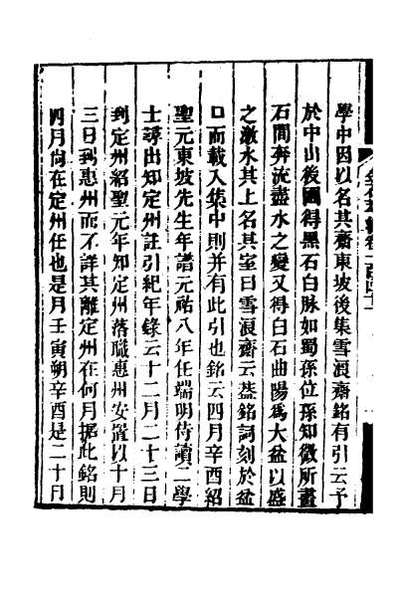 學中因以名其齋東坡後集雪浪齋銘有引云予
於中山後圃得黑石白脉如蜀孫位孫知微所畫
石間奔流盡水之變又得白石曲陽爲大盆以盛
之激水其上名其室曰雪浪齋云葢銘詞刻於盆
口而載入集中則并有此引也銘云四月辛酉紹
聖元東坡先生年譜元祐八年任端明侍讀二學
士尋出知定州註引紀年錄云十二月二十三日
到定州紹聖元年知定州落職惠州安置以十月
三日到惠州而不詳其離定州在何月據此銘則
四月尚在定州任也是月壬寅朔辛酉是二十日
金石萃編卷一百四十一